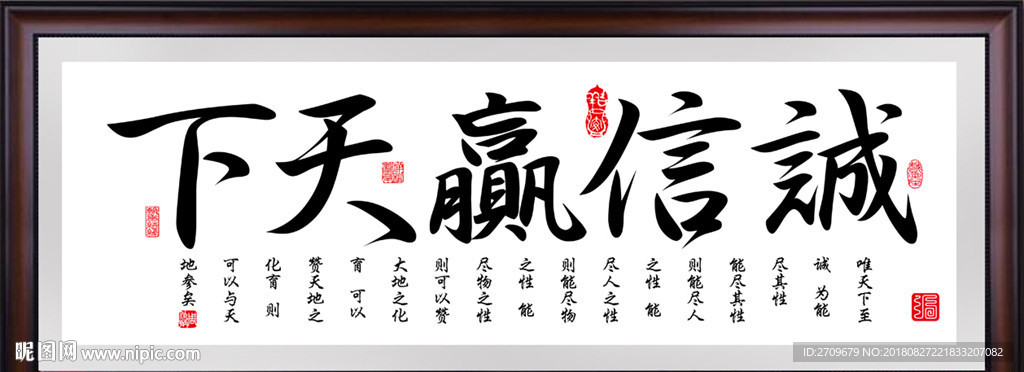 誠信贏天下
唯天下至
誠 为能
尽其性
能尽其性
則能尽人
之性 能
尽人之性
則能尽物
之性 能
尽物之性
則可以赞
大地之化
育 可以
赞天地之
化育 則
可以与天
地参矣
昵图网 www.nipic.com
ID:2709679 NO:20180827221833207082